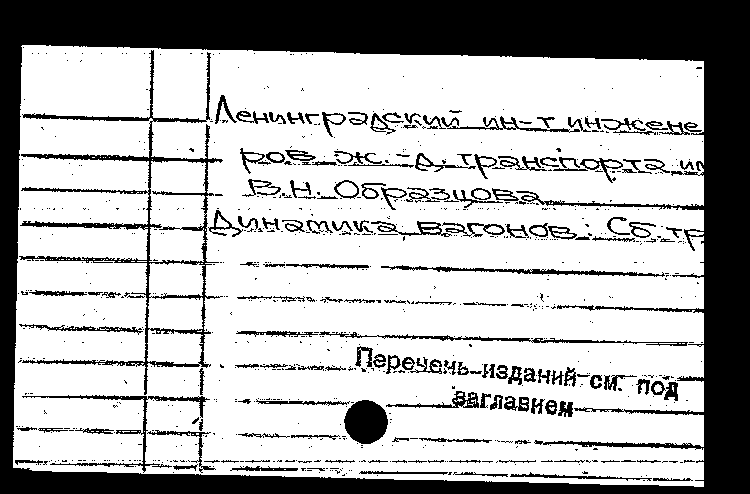 Ленинградский ин-т инжене
ров ж.-д. транспорта им
В.Н. Образцова
Динамика вагонов: Сб. тр
Перечень изданий см. под
заглавием